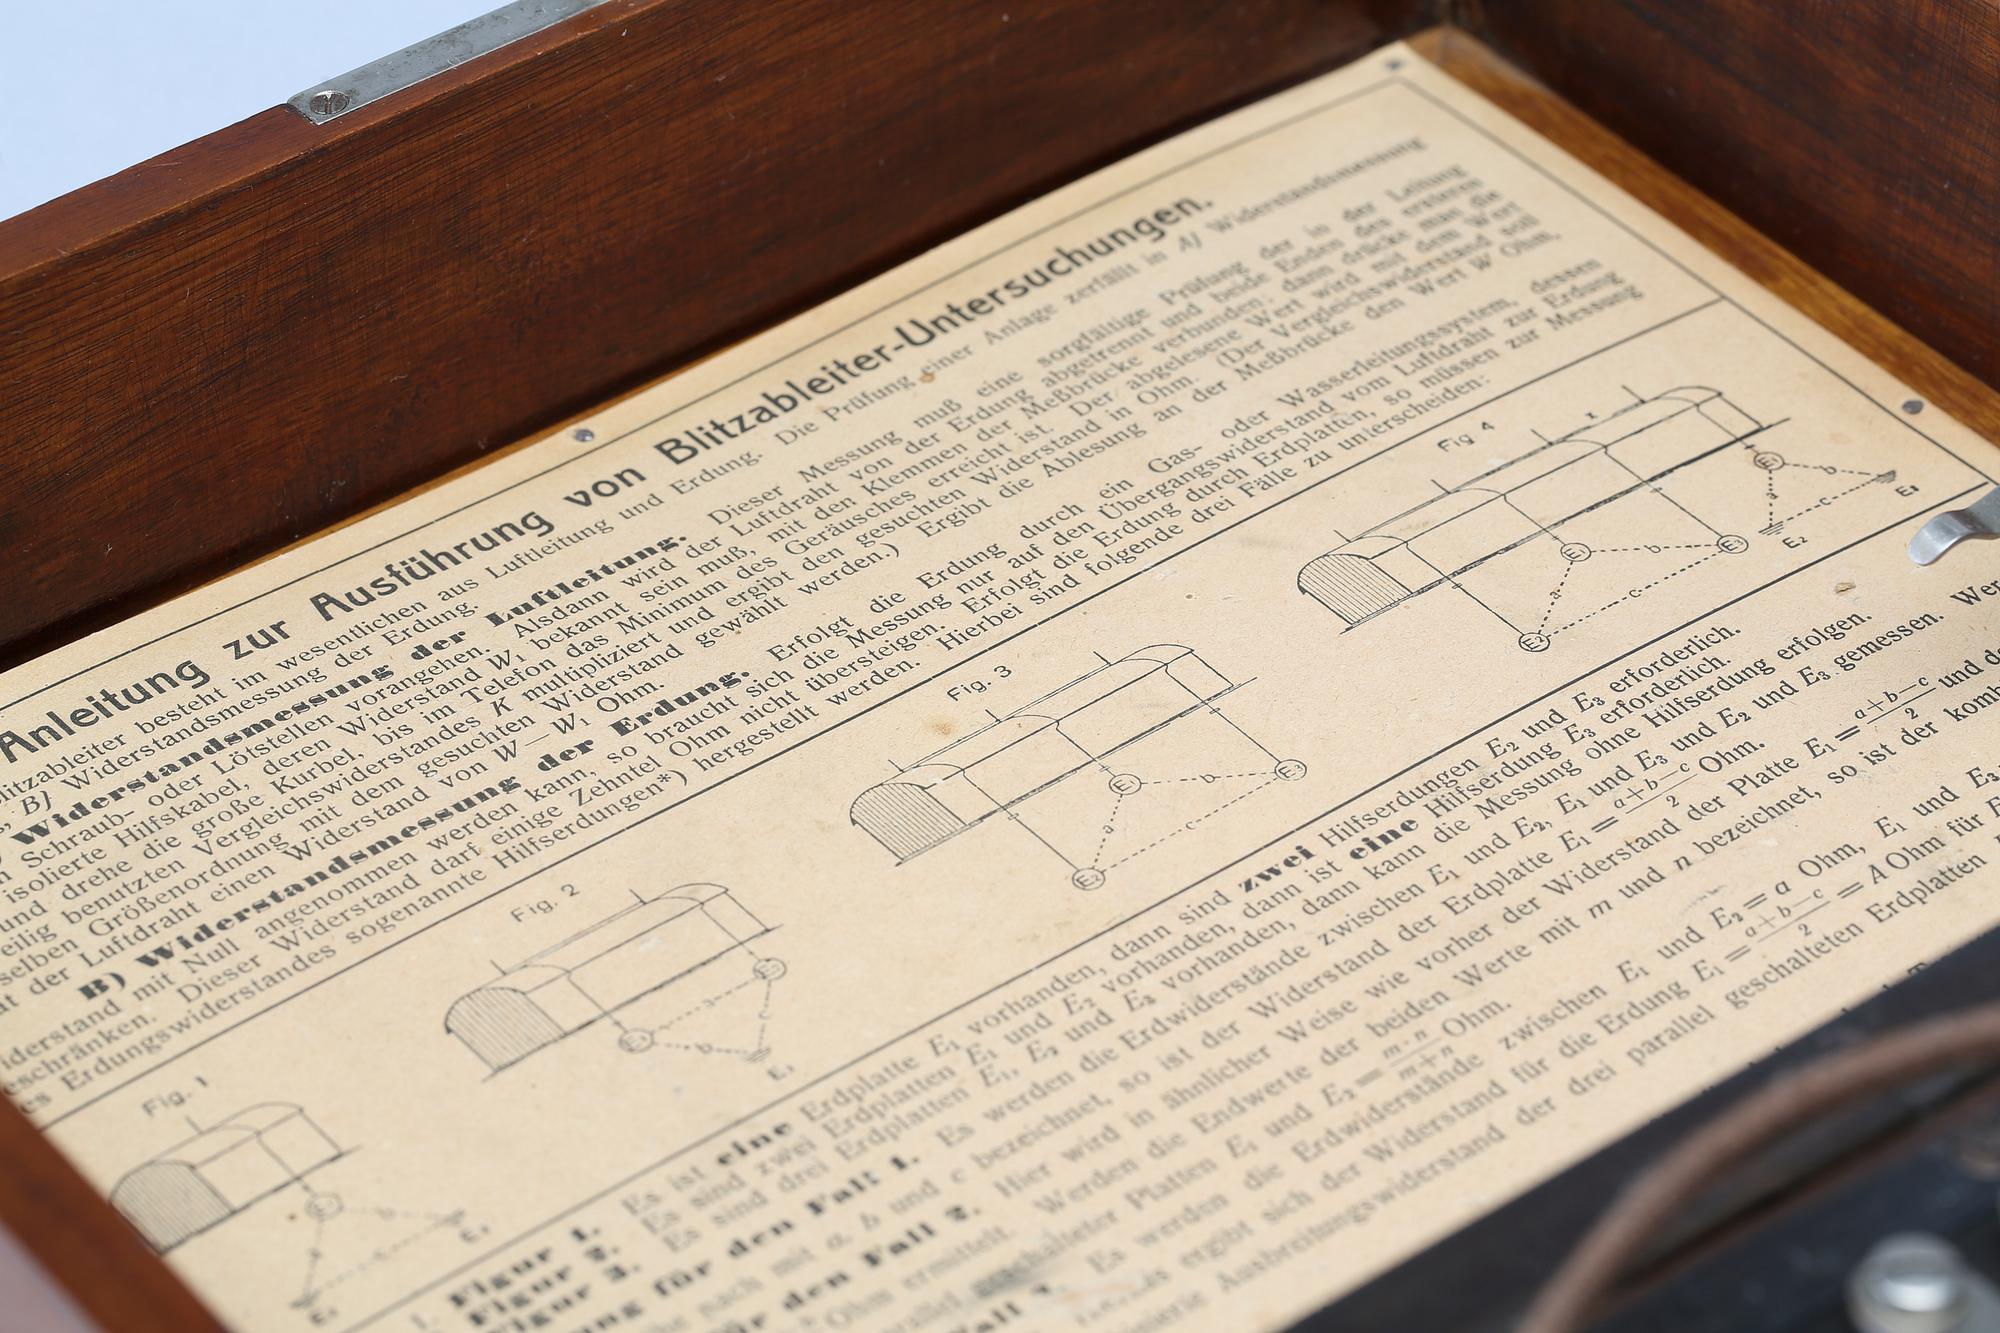 Anleitung zur Ausführung von Blitzableiter-Untersuchungen.
besteht im wesentlichen aus Luftleitung und Erdung. Die Prüfung einer Anlage zerfällt in A) Widerstandsmessung
B) Widerstandsmessung der Erdung.
Widerstandsmessung der Luftleitung. Dieser Messung muß eine sorgfältige Prüfung der in der Leitung
Schraub- oder Lötstellen vorangehen. Alsdann wird der Luftdraht von der Erdung abgetrennt und beide Enden des ersteren
isolierte Hilfskabel, deren Widerstand W₁ bekannt sein muß, mit den Klemmen der Meßbrücke verbunden; dann drücke man die
und drehe die große Kurbel, bis im Telefon das Minimum des Geräusches erreicht ist. Der abgelesene Wert wird mit dem Wert
benutzten Vergleichswiderstandes K multipliziert und ergibt den gesuchten Widerstand in Ohm. (Der Vergleichswiderstand soll
selben Größenordnung mit dem gesuchten Widerstand gewählt werden.) Ergibt die Ablesung an der Meßbrücke den Wert W Ohm,
der Luftdraht einen Widerstand von W — W₁ Ohm.
B) Widerstandsmessung der Erdung. Erfolgt die Erdung durch ein Gas- oder Wasserleitungssystem, dessen
mit Null angenommen werden kann, so braucht sich die Messung nur auf den Übergangswiderstand vom Luftdraht zur Erdung
Dieser Widerstand darf einige Zehntel Ohm nicht übersteigen. Erfolgt die Erdung durch Erdplatten, so müssen zur Messung
Erdungswiderstandes sogenannte Hilfserdungen*) hergestellt werden. Hierbei sind folgende drei Fälle zu unterscheiden:
Fig. 1
E₁
a
c
Fig. 2
E₁
E₂
a
b
E₃
Fig. 3
E₁
E₂
E₃
a
b
c
Fig 4
x
E₁
E₂
E₃
a
b
c
E₁
a
b
c
E₂
E₃
1. Figur 1. Es ist eine Erdplatte E₁ vorhanden, dann sind zwei Hilfserdungen E₂ und E₃ erforderlich.
Figur 2. Es sind zwei Erdplatten E₁ und E₂ vorhanden, dann ist eine Hilfserdung E₃ erforderlich.
Figur 3. Es sind drei Erdplatten E₁, E₂ und E₃ vorhanden, dann kann die Messung ohne Hilfserdung erfolgen.
für den Fall 1. Es werden die Erdwiderstände zwischen E₁ und E₂, E₁ und E₃ und E₂ und E₃ gemessen.
nach mit a, b und c bezeichnet, so ist der Widerstand der Erdplatte E₁ = (a+b—c)/2 Ohm.
für den Fall 2. Hier wird in ähnlicher Weise wie vorher der Widerstand der Platte E₁ = (a+b—c)/2 und
Ohm ermittelt. Werden die Endwerte der beiden Werte mit m und n bezeichnet, so ist der
geschalteter Platten E₁ und E₂ = (m·n)/(m+n) Ohm.
Es werden die Erdwiderstände zwischen E₁ und E₂ = a Ohm, E₁ und E₃
ergibt sich der Widerstand für die Erdung E₁ = (a+b—c)/2 = A Ohm für
Ausbreitungswiderstand der drei parallel geschalteten Erdplatten